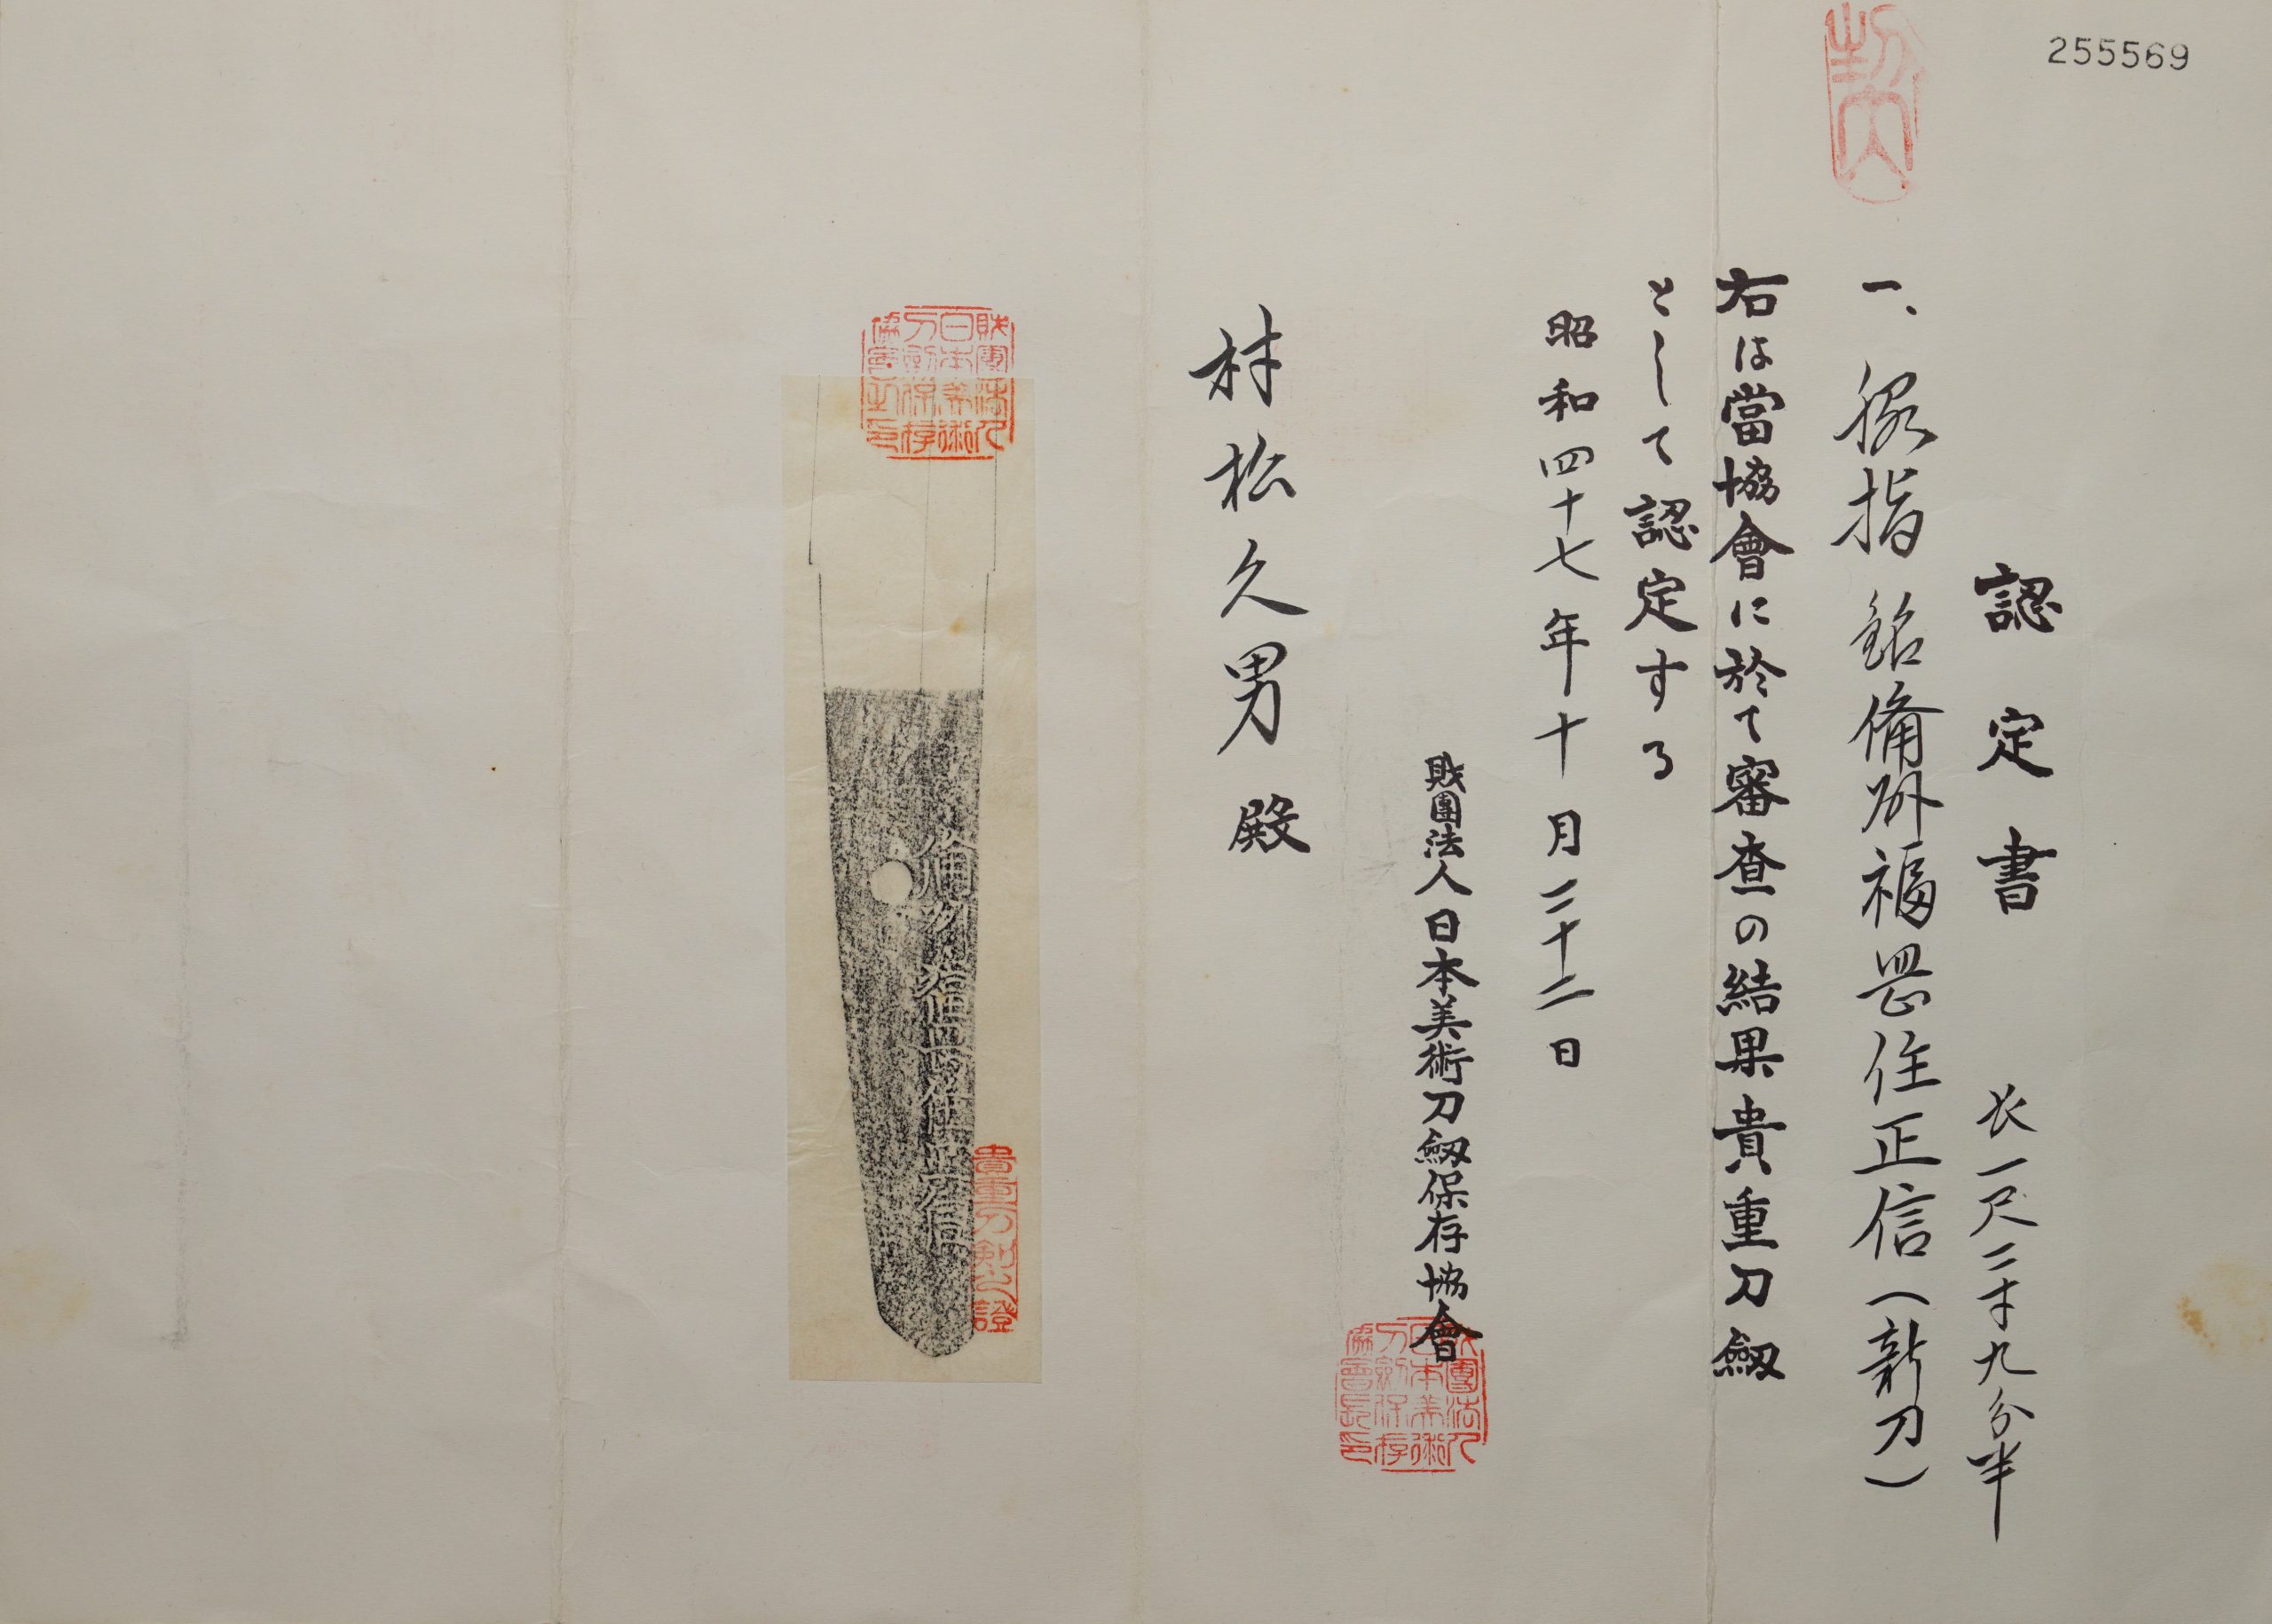 255569
認定書
長一尺二寸九分半
一、脇指 銘備州福岡住正信(新刀)
右は當協會に於て審査の結果貴重刀劔
として認定する
昭和四十七年十月二十二日
財團法人日本美術刀劔保存協會
村松久男殿
財團法人日本美術刀剣保存協會之印
貴重刀剣之證
財團法人日本美術刀剣保存協會長印